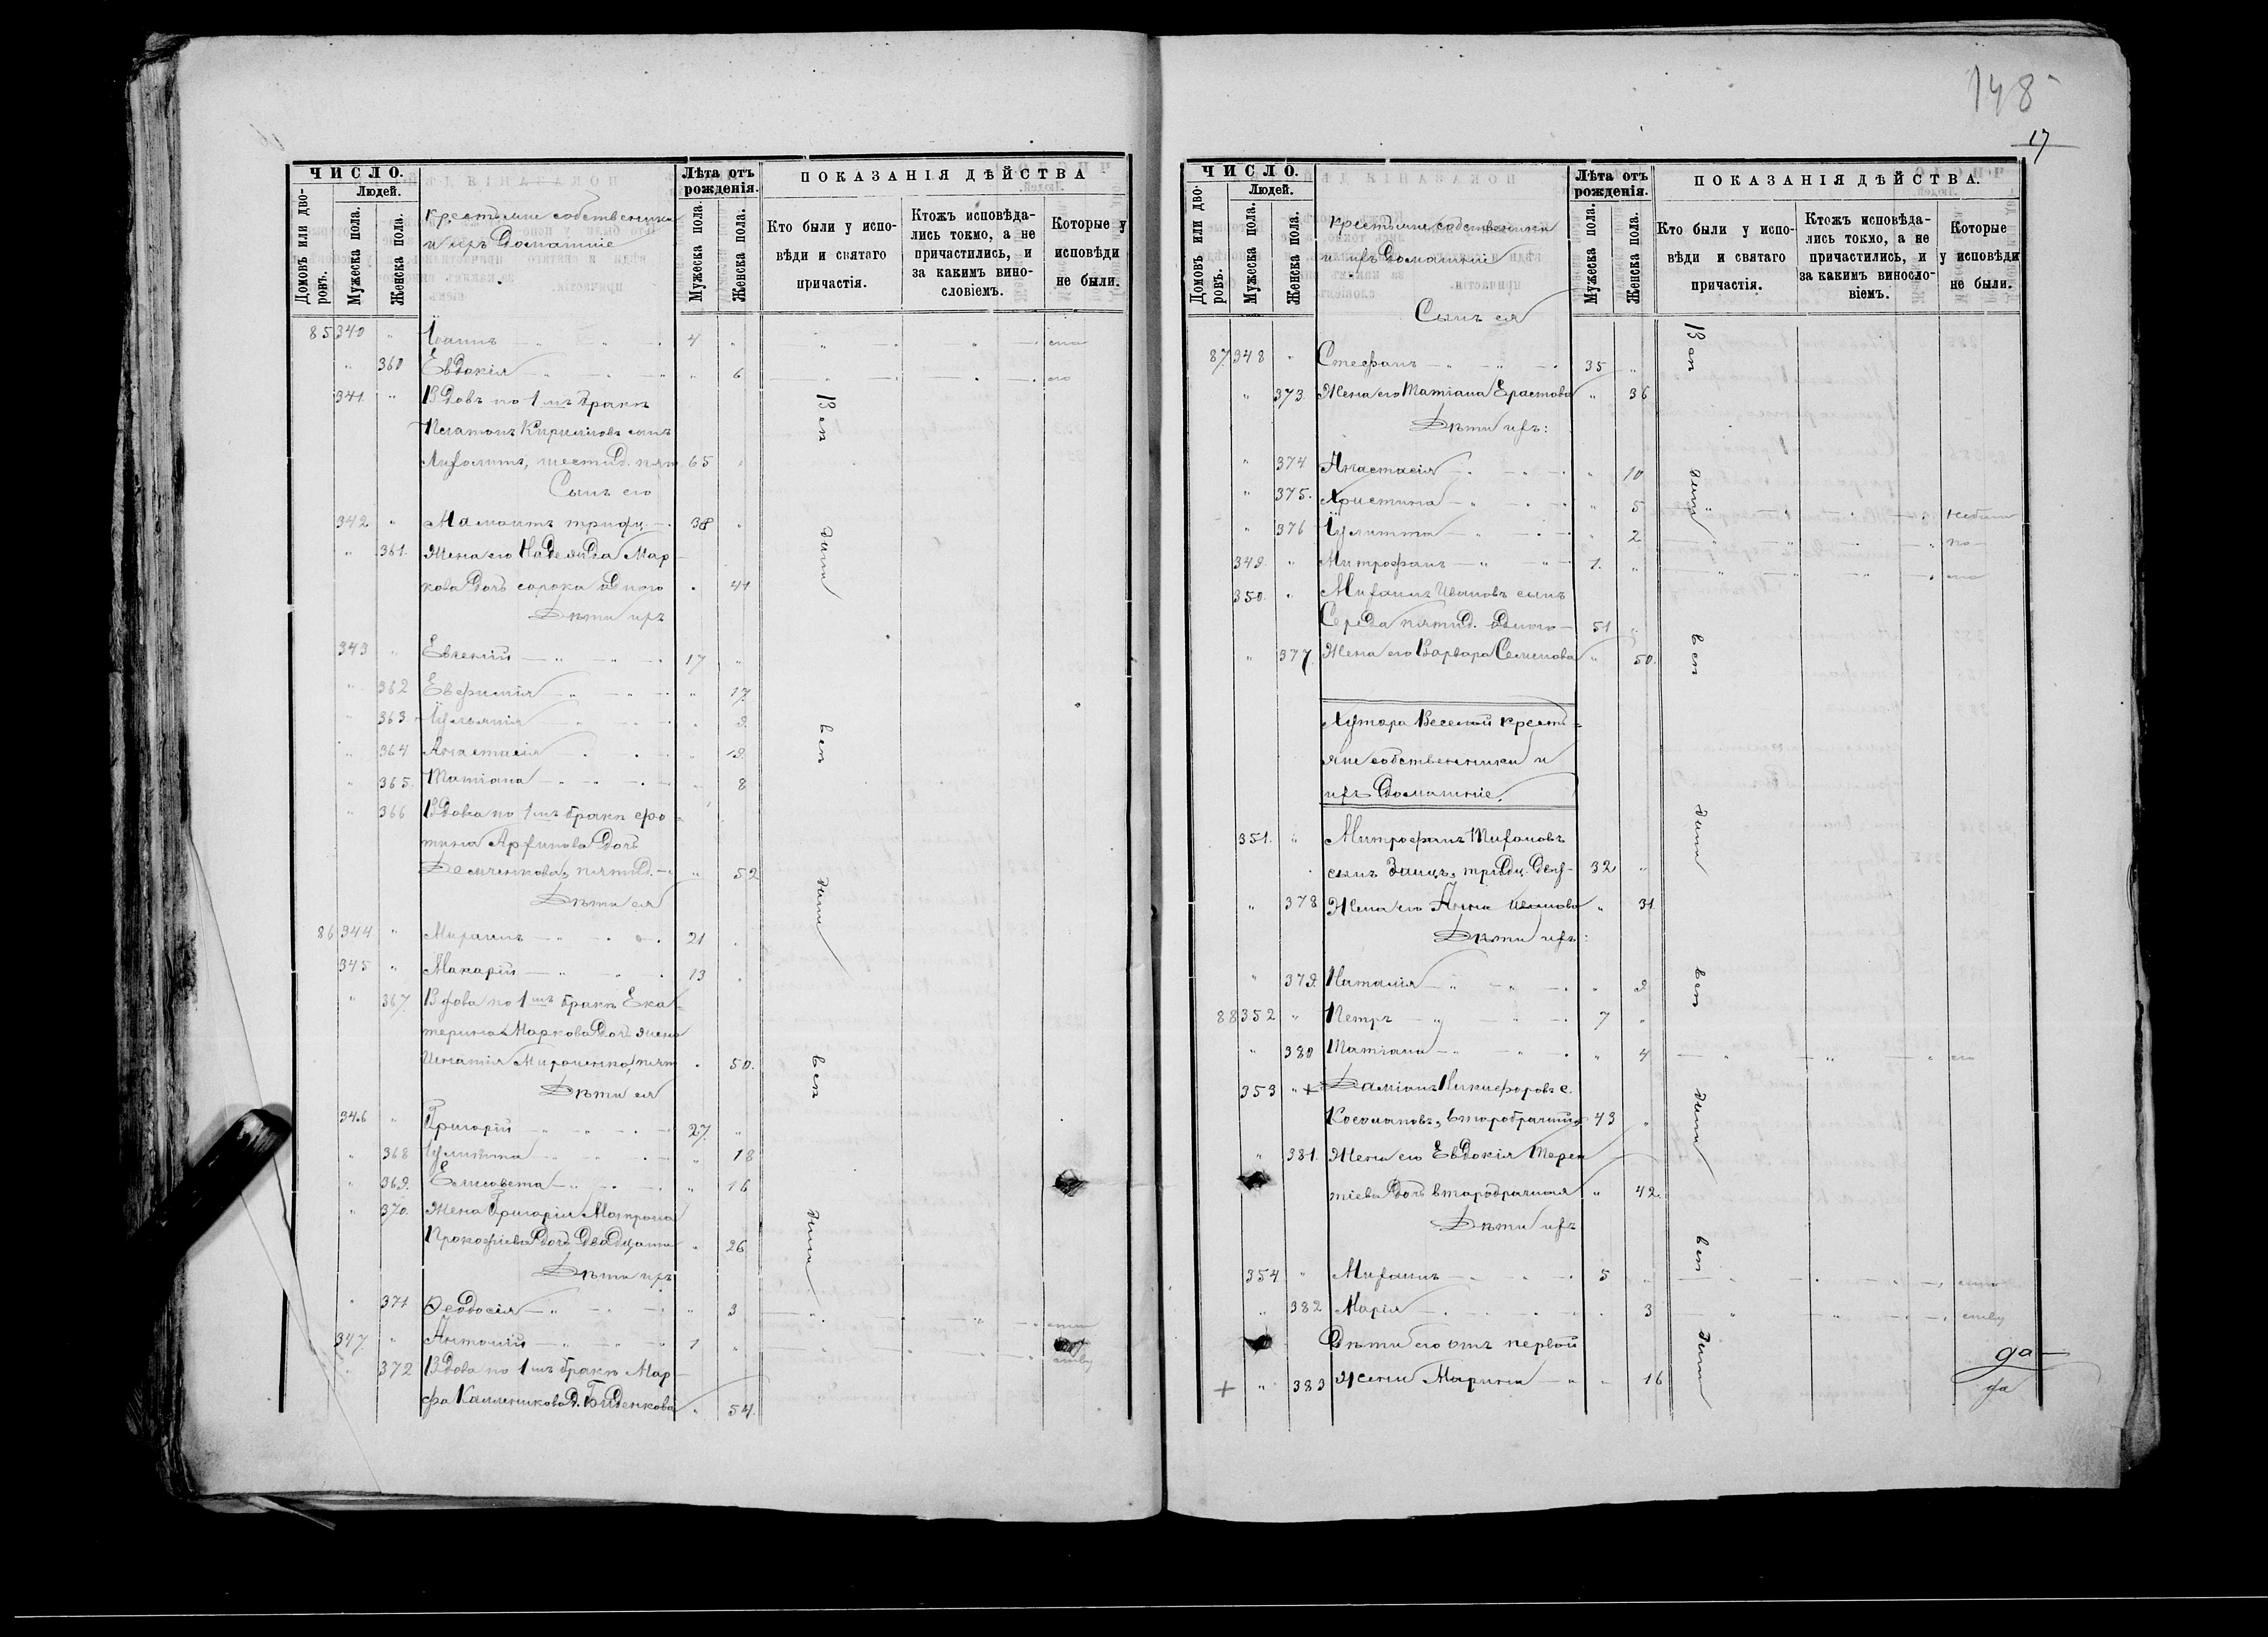 148
17
ЧИСЛО.
Людей.
Домовъ или дворовъ.
Мужеска пола.
Женска пола.
крестьяне собственники
и ихъ домашніе
Лѣта отъ рожденія.
Мужеска пола.
Женска пола.
ПОКАЗАНІЯ ДѢЙСТВА
Кто были у исповѣди и святаго причастія.
Ктожъ исповѣдались токмо, а не причастились, и за какимъ винословіемъ.
Которые у исповѣди не были.
85 340 " Іоаннъ 4 "
" 360 Евдокія " 6
341 " Вдовъ по 1мъ бракѣ
Платонъ Кириловъ сынъ
шестид. пят 65
Сынъ его
342 " Мамонтъ тридц. 38 "
" 361. Жена его Надежда Мар
кова дочь сорока одного " 41
Дѣти ихъ
343 " Евгеній 17 "
" 362 Евфимія " 17
" 363 Іульянія " 9.
" 364 Анастасія " 12.
" 365. Татіана " 8
" 366 Вдова по 1мъ бракѣ Фо
тина дочь
Демченкова, пятид. " 52
Дѣти ея
86 344 " Михаилъ 21 "
345 " Макарій 13 "
" 367. Вдова по 1мъ бракѣ Ека
терина Маркова дочь жена
Игнатія Мироненко, пят " 50.
Дѣти ея
346 " Григорій 27. "
" 368 Іулитта " 18
" 369. Елисавета " 16
" 370. Жена Григорія Матрона
Прокофіева дочь двадцати " 26
Дѣти ихъ
" 371 Феодосія " 3
347. " Антоній 1 "
" 372 Вдова по 1мъ бракѣ Мар
фа Калленикова д. Биденкова " 54.
Вси
были
вси
были
вси
были
ЧИСЛО.
Людей.
Домовъ или дворовъ.
Мужеска пола.
Женска пола.
крестьяне собственники
и ихъ домашніе
Лѣта отъ рожденія.
Мужеска пола.
Женска пола.
ПОКАЗАНІЯ ДѢЙСТВА.
Кто были у исповѣди и святаго причастія.
Ктожъ исповѣдались токмо, а не причастились, и за какимъ винословіемъ.
Которые у исповѣди не были.
Сынъ ея
87. 348 " Стефанъ 35 "
" 373. Жена его Татіана Ерастова " 36
Дѣти ихъ:
" 374 Анастасія " 10
" 375. Христина " 5
" 376 Іулитта " 2
349. " Митрофанъ 1. "
350. " Михаилъ Ивановъ сынъ
Середа пятид. одного 51 "
" 377. Жена его Варвара Семенова " 50.
Хутора Веселой кресть-
яне собственники и
ихъ домашніе.
351. " Митрофанъ Тихоновъ
сынъ Заицъ, тридц. двух 32 "
" 378 Жена его Анна Иванова " 31
Дѣти ихъ:
" 379. Наталія " 9
88 352 " Петръ 7 "
" 380 Татіана " 4
353 " + Даміанъ Никифоровъ с.
Косомановъ, второбрачный 43 "
" 381. Жена его Евдокія Терен
тіева дочь второбрачная " 42.
Дѣти ихъ
354 " Михаилъ 5 "
" 382 Марія " 3
Дѣти его отъ первой
+ " 383 жены Марина " 16
Вси
были
вси
были
вси
были
вси
были
да
да